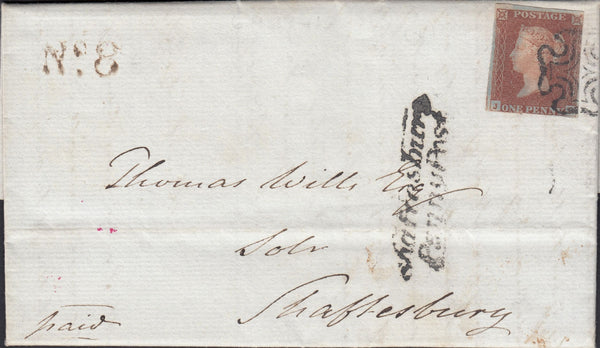 No. 8
POSTAGE
J ONE PENN
Thomas Wills Esq
Solr
Shaftesbury
paid